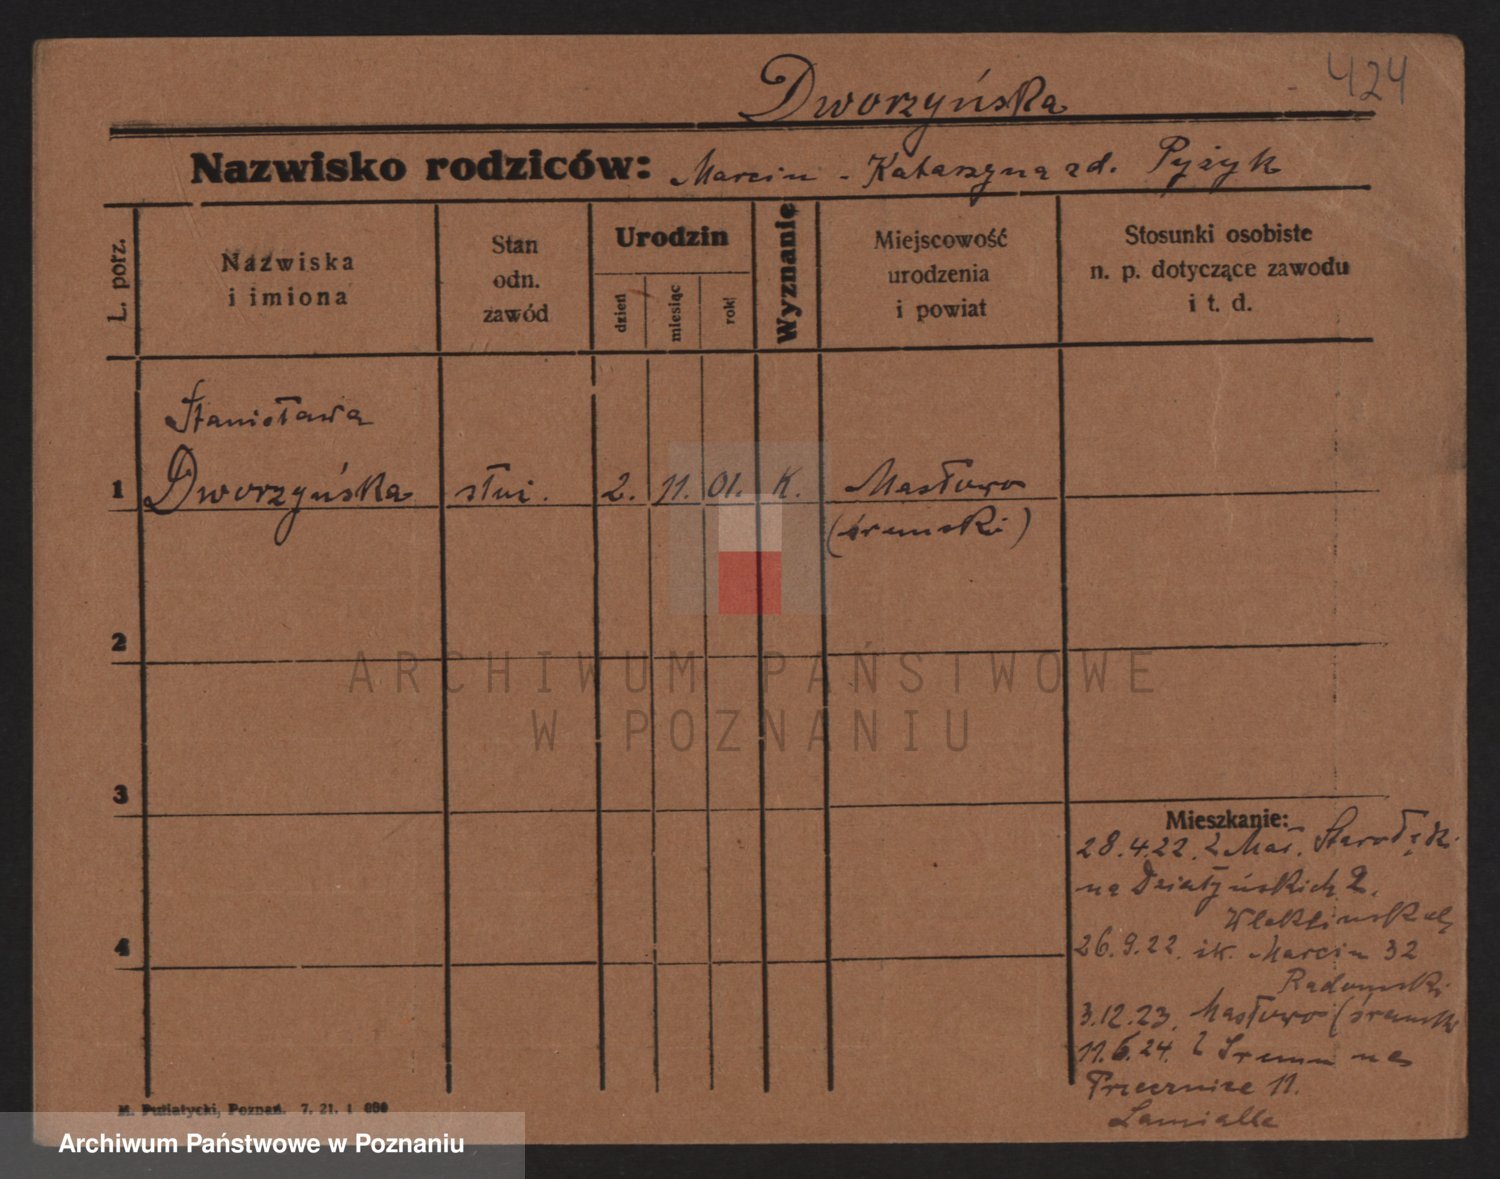 Dworzyńska
424
Nazwisko rodziców: Marcin - Katarzyna zd. Pyżyk
L. porz.
Nazwiska
i imiona
Stan
odn.
zawód
Urodzin
dzień
miesiąc
rok
Wyznanie
Miejscowość
urodzenia
i powiat
Stosunki osobiste
n. p. dotyczące zawodu
i t. d.
Stanisława
1 Dworzyńska służ. 2. 11. 01. K. Masłowo
(śremski)
2
ARCHIWUM PAŃSTWOWE
W POZNANIU
3
Mieszkanie:
28.4.22. z Mał. Starołęki
na Działyńskich 2.
26.9.22. św. Marcin 32
4
Radomski
3.12.23. Masłowo (śremsk
11.6.24. z Śremu na
11.
M. Putiatycki, Poznań. 7. 21. 1 000
Archiwum Państwowe w Poznaniu